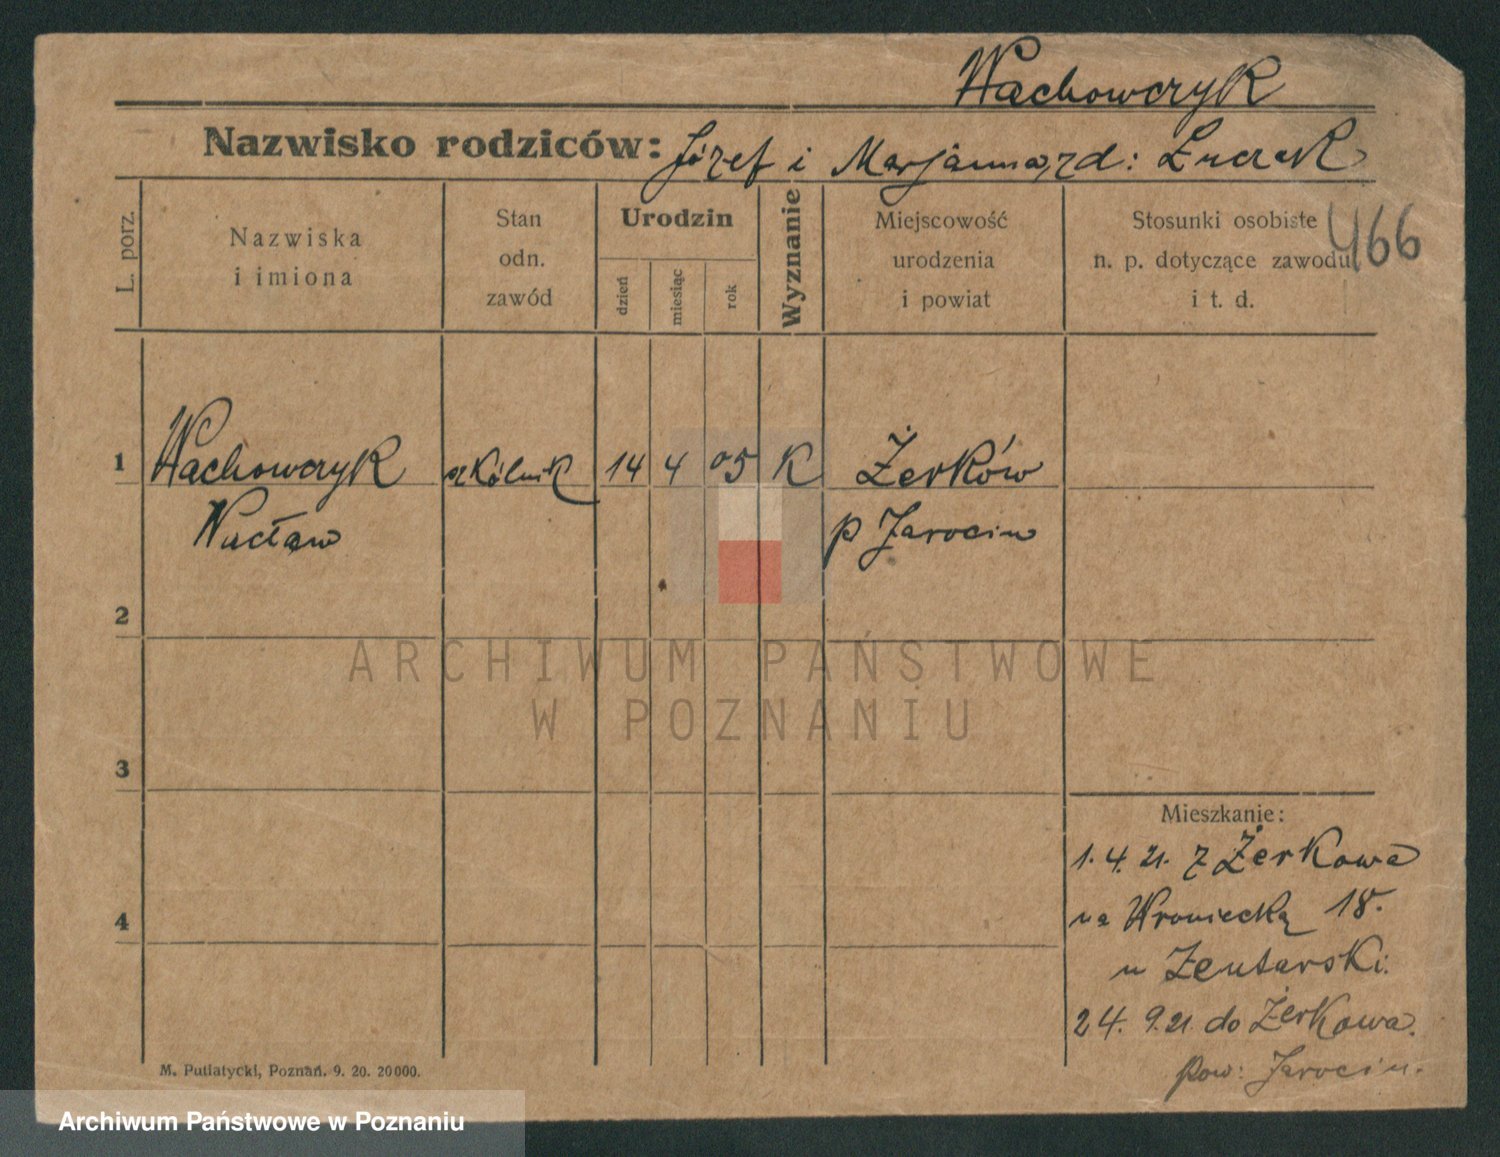 Wachowczyk
Nazwisko rodziców: Józef i Marjanna, zd: Łuczak
466
L. porz.
Nazwiska
i imiona
Stan
odn.
zawód
Urodzin
dzień
miesiąc
rok
Wyznanie
Miejscowość
urodzenia
i powiat
Stosunki osobiste
n. p. dotyczące zawodu
i t. d.
1 Wachowczyk szkólnik 14 4 05 K Żerków
Wacław p Jarocin
2
ARCHIWUM PAŃSTWOWE
W POZNANIU
3
Mieszkanie:
1. 4. 21. z Żerkowa
4
na Wroniecką 18.
u Zentarski.
24. 9. 21. do Żerkowa.
pow: Jarocin.
M. Putiatycki, Poznań. 9. 20. 20000.
Archiwum Państwowe w Poznaniu